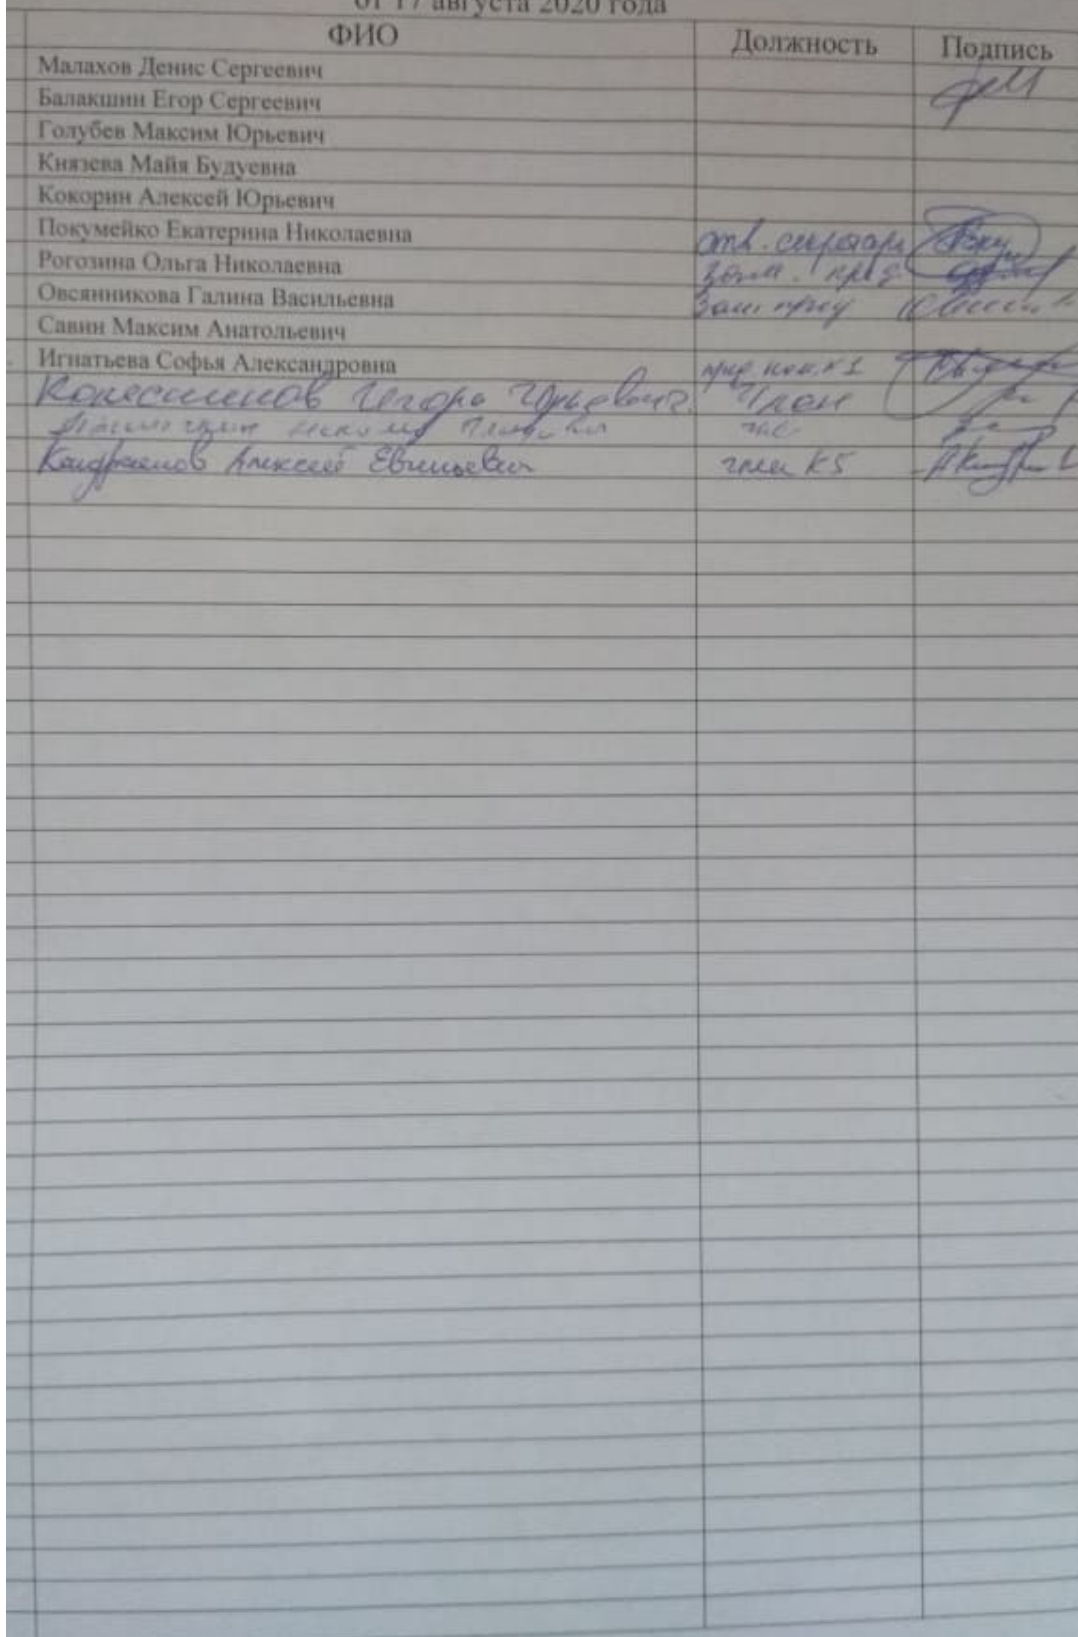 от 17 августа 2020 года
ФИО Должность Подпись
Малахов Денис Сергеевич
Балакшин Егор Сергеевич
Голубев Максим Юрьевич
Князева Майя Будуевна
Кокорин Алексей Юрьевич
Покумейко Екатерина Николаевна отв. секретарь
Рогозина Ольга Николаевна зам. пред
Овсянникова Галина Васильевна
Савин Максим Анатольевич
Игнатьева Софья Александровна
Игорь Юрьевич Член
Алексей Евгеньевич член К5